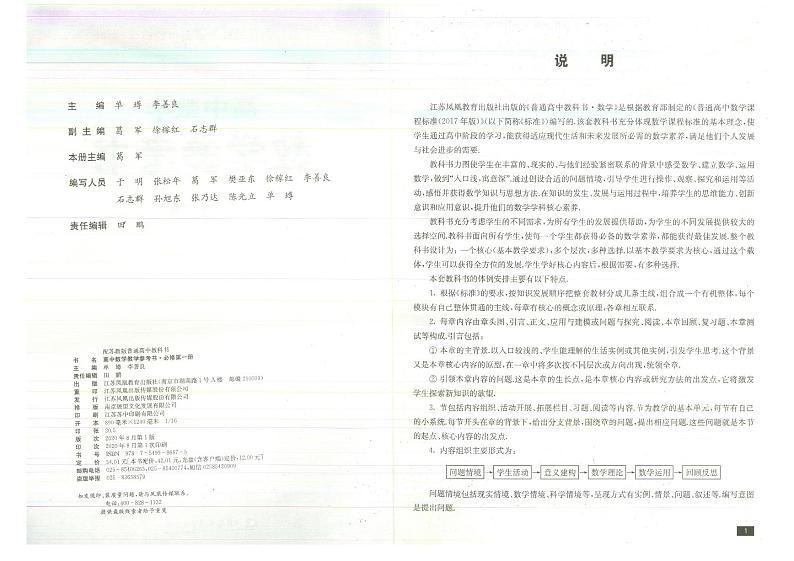 主 编 单 墫 李善良
副 主 编 葛 军 徐稼红 石志群
本册主编 葛 军
编写人员 于 明 张松年 葛 军 樊亚东 徐稼红 李善良
石志群 孙旭东 张乃达 陈光立 单 墫
责任编辑 田 鹏
配苏教版普通高中教科书
书 名 高中数学教学参考书·必修第一册
主 编 单 墫 李善良
责任编辑 田 鹏
出 版 江苏凤凰教育出版社(南京市湖南路1号A楼 邮编210009)
重 印 江苏凤凰出版传媒股份有限公司
发 行 江苏凤凰出版传媒股份有限公司
排 版 南京展望文化发展有限公司
印 刷 江苏苏中印刷有限公司
开 本 890毫米×1240毫米 1/16
印 张 20.5
版 次 2020年8月第1版
2020年8月第1次印刷
书 号 ISBN 978-7-5499-8667-5
定 价 54.01元(本书配价:42.01元,光盘(含客户端)定价:12.00元)
邮购电话 025-85406265,025-85400774,短信02585420909
盗版举报 025-83658579
如发现印、装质量问题,请与凤凰传媒联系。
电话:400-828-1132
提供盗版线索者给予重奖
说 明
江苏凤凰教育出版社出版的《普通高中教科书·数学》是根据教育部制定的《普通高中数学课
程标准(2017年版)》(以下简称《标准》)编写的.该套教科书充分体现数学课程标准的基本理念,使
学生通过高中阶段的学习,能获得适应现代生活和未来发展所必需的数学素养,满足他们个人发展
与社会进步的需要.
教科书力图使学生在丰富的、现实的、与他们经验紧密联系的背景中感受数学、建立数学、运用
数学,做到“入口浅,出意深”.通过创设合适的问题情境,引导学生进行操作、观察、探究和运用等活
动,感悟并获得数学知识与思想方法.在知识的发生、发展与运用过程中,培养学生的思维能力、创新
意识和应用意识,提升他们的数学学科核心素养.
教科书充分考虑学生的不同需求,为所有学生的发展提供帮助,为学生的不同发展提供较大的
选择空间.教科书面向所有学生,使每一个学生都获得必备的数学素养,都能获得最佳发展.整个教
科书设计为:一个核心(基本教学要求),多个层次,多种选择.以基本教学要求为核心,通过这个载
体,学生可以获得全方位的发展.学生学好核心内容后,根据需要,有多种选择.
本套教科书的体例安排主要有以下特点.
1. 根据《标准》的要求,按知识发展顺序把整套教材分成几条主线,组合成一个有机整体,每个
模块有自己整体贯通的主线,每章有核心的概念或原理,各章互相联系.
2. 每章内容由章头图、引言、正文、应用与建模或问题与探究、阅读、本章回顾、复习题、本章测
试等构成.引言包括:
① 本章的主背景.以入口较浅的、学生能理解的生活实例或其他实例,引发学生思考.这个背景
又是本章核心内容的原型,在一章中将多次按不同层次或方向出现,统领全章.
② 引领本章内容的问题.这是本章的生长点,是本章核心内容或研究方法的出发点,它将激发
学生探索新知识的欲望.
3. 节包括内容组织、活动开展、拓展栏目、习题、阅读等内容.节为教学的基本单元,每节有自己
的小系统.每节开头在章的背景下,给出分支背景,围绕章的问题,提出相应问题.这些问题就是本节
的起点、核心内容的出发点.
4. 内容组织主要形式为:
问题情境 → 学生活动 → 意义建构 → 数学理论 → 数学运用 → 回顾反思
问题情境包括现实情境、数学情境、科学情境等,呈现方式有实例、情景、问题、叙述等.编写意图
是提出问题.
1